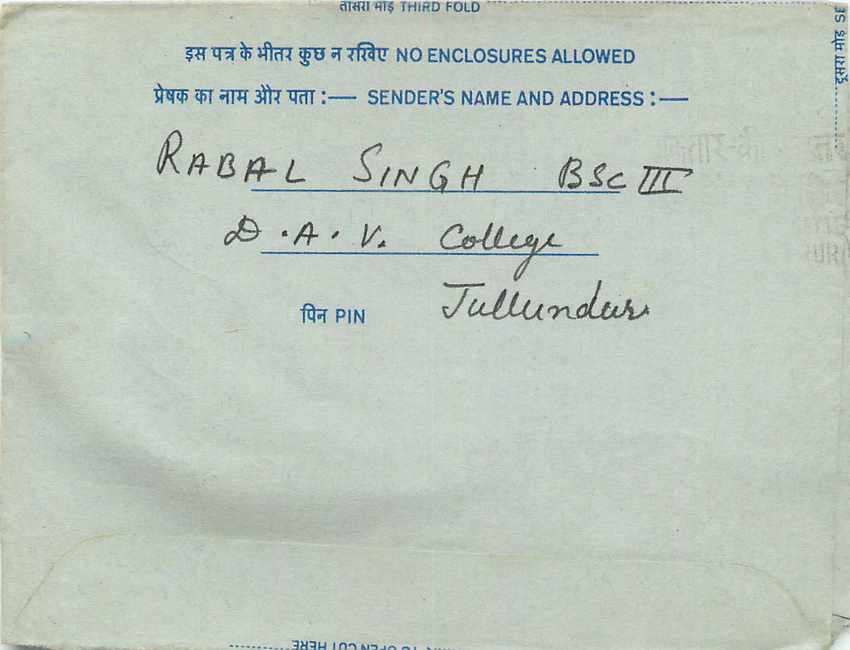 तीसरा मोड़ THIRD FOLD
इस पत्र के भीतर कुछ न रखिए NO ENCLOSURES ALLOWED
प्रेषक का नाम और पता :— SENDER'S NAME AND ADDRESS :—
RABAL SINGH BSC III
D.A.V. College
पिन PIN Jullundur
दूसरा मोड़ SE
TO OPEN CUT HERE